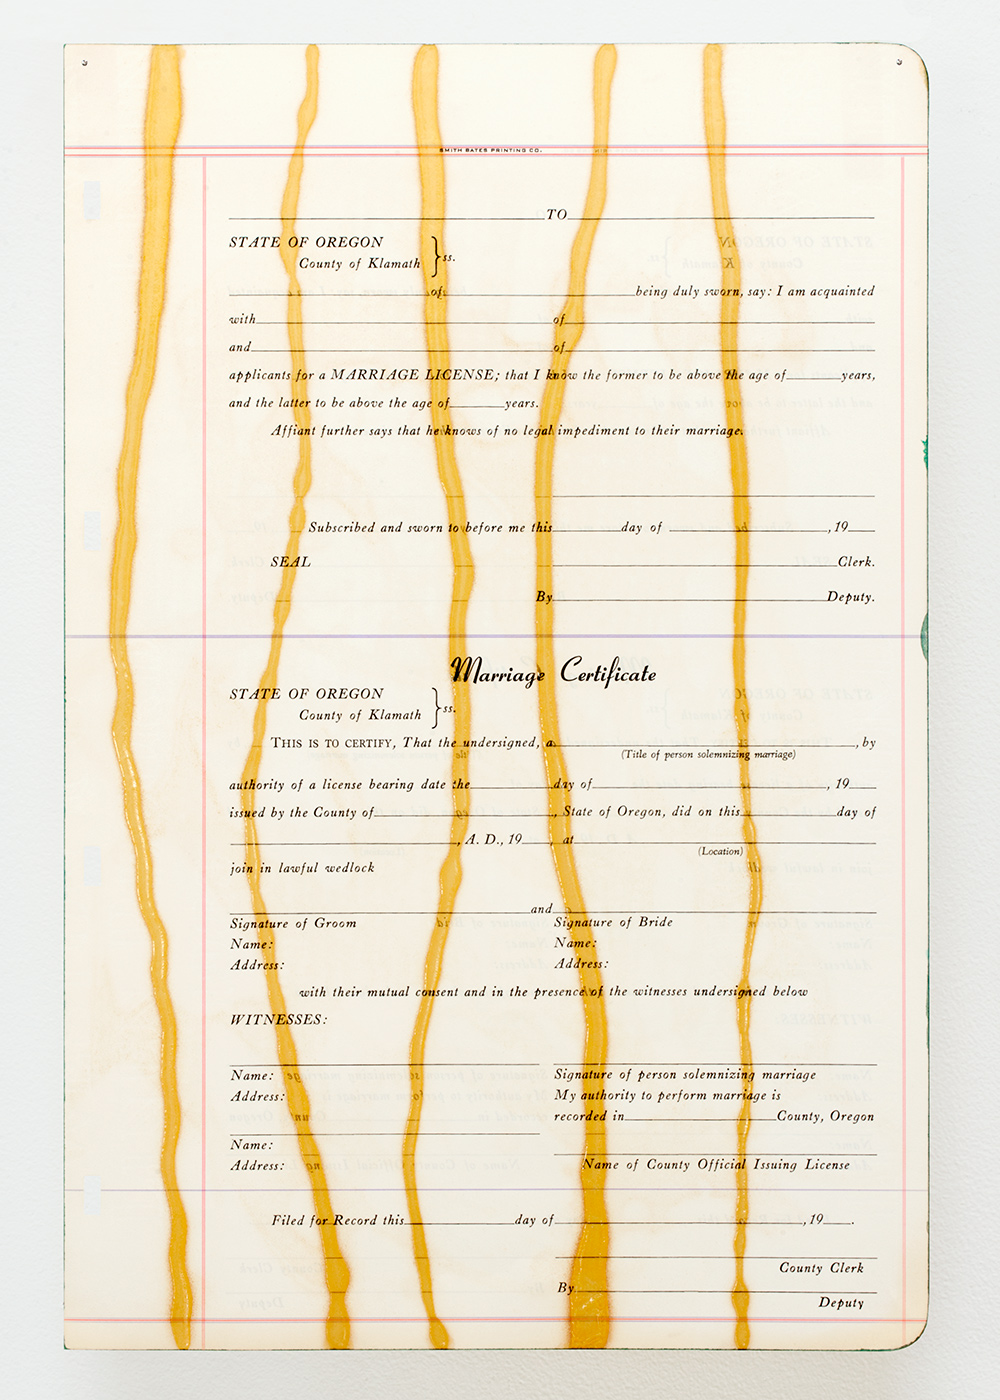 SMITH BATES PRINTING CO.
TO
STATE OF OREGON
County of Klamath } ss.
of being duly sworn, say: I am acquainted
with of
and of
applicants for a MARRIAGE LICENSE; that I know the former to be above the age of years,
and the latter to be above the age of years.
Affiant further says that he knows of no legal impediment to their marriage.
Subscribed and sworn to before me this day of , 19
SEAL Clerk.
By Deputy.
Marriage Certificate
STATE OF OREGON
County of Klamath } ss.
THIS IS TO CERTIFY, That the undersigned, a , by
(Title of person solemnizing marriage)
authority of a license bearing date the day of , 19
issued by the County of , State of Oregon, did on this day of
, A. D., 19 , at
(Location)
join in lawful wedlock
and
Signature of Groom Signature of Bride
Name: Name:
Address: Address:
with their mutual consent and in the presence of the witnesses undersigned below
WITNESSES:
Name: Signature of person solemnizing marriage
Address: My authority to perform marriage is
recorded in County, Oregon
Name:
Address: Name of County Official Issuing License
Filed for Record this day of , 19 .
County Clerk
By
Deputy